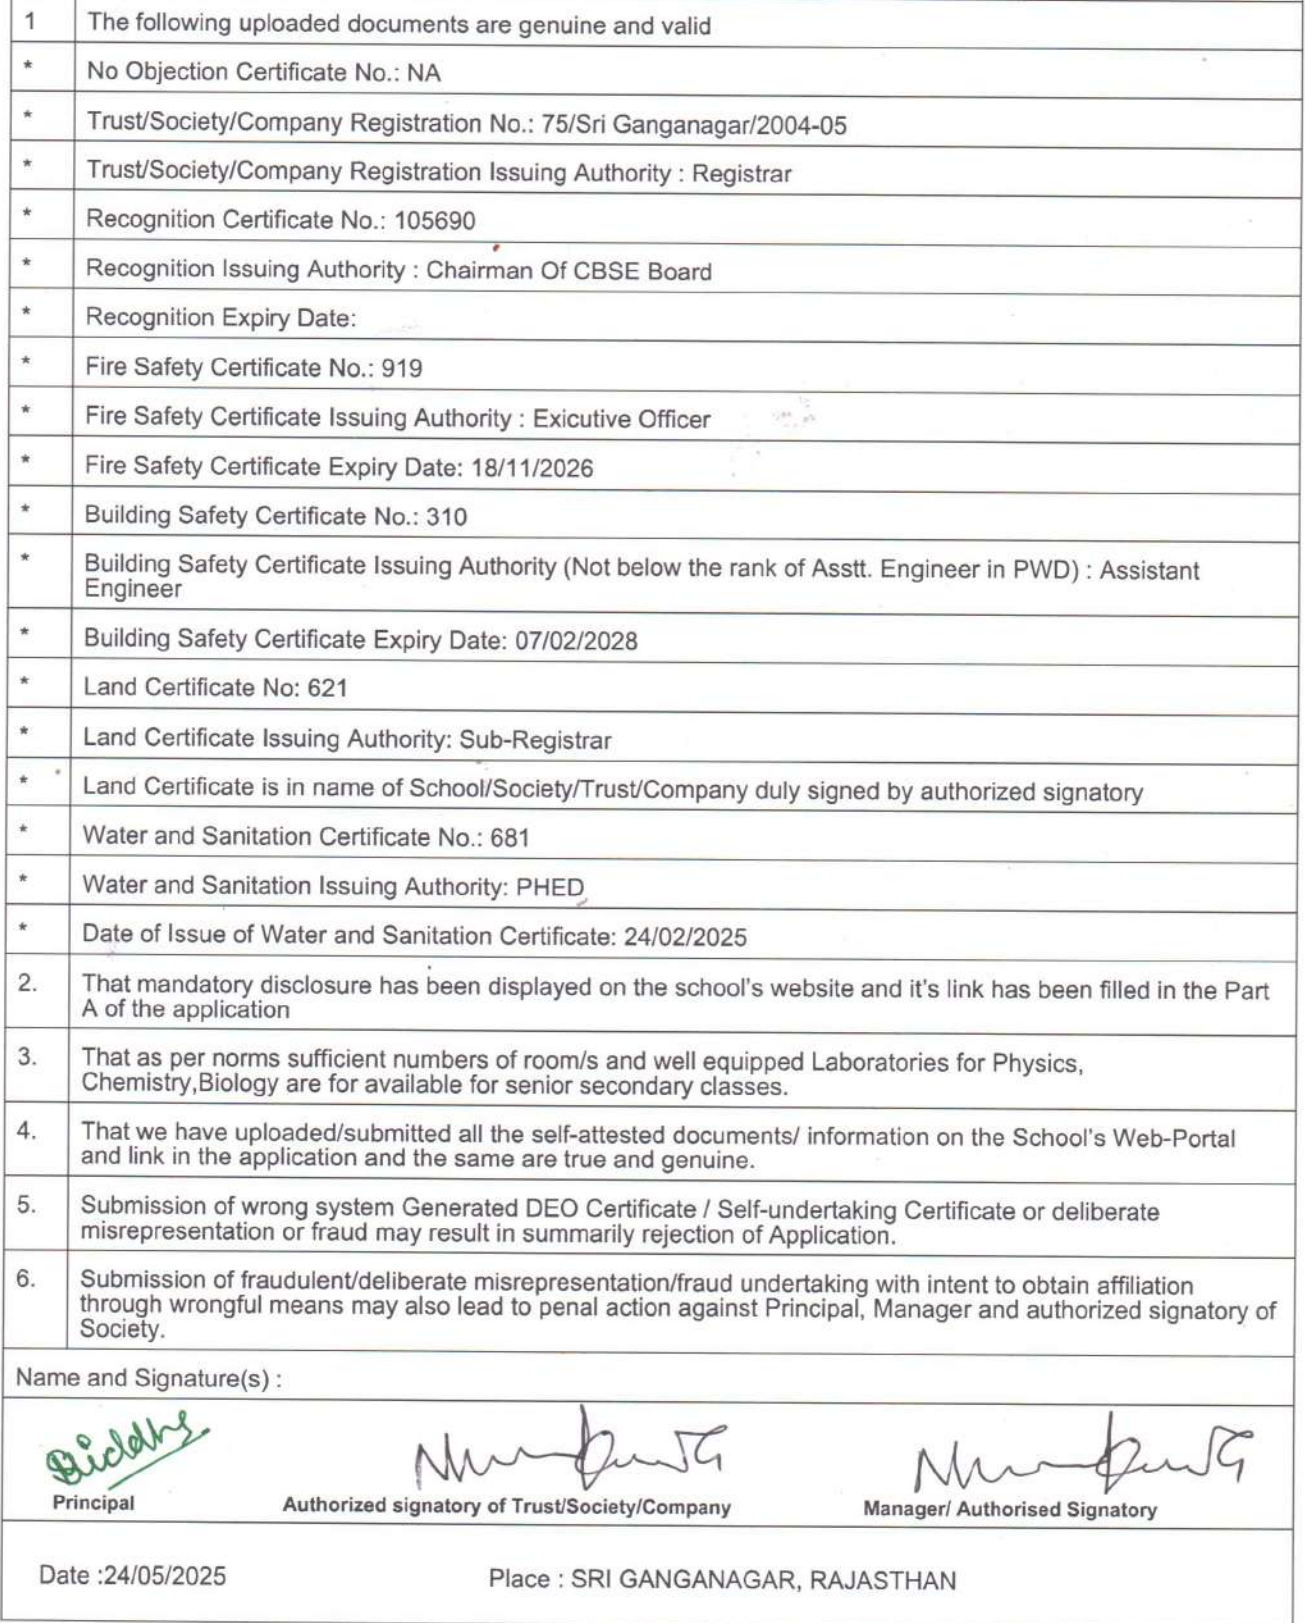 1 The following uploaded documents are genuine and valid
* No Objection Certificate No.: NA
* Trust/Society/Company Registration No.: 75/Sri Ganganagar/2004-05
* Trust/Society/Company Registration Issuing Authority : Registrar
* Recognition Certificate No.: 105690
* Recognition Issuing Authority : Chairman Of CBSE Board
* Recognition Expiry Date:
* Fire Safety Certificate No.: 919
* Fire Safety Certificate Issuing Authority : Exicutive Officer
* Fire Safety Certificate Expiry Date: 18/11/2026
* Building Safety Certificate No.: 310
* Building Safety Certificate Issuing Authority (Not below the rank of Asstt. Engineer in PWD) : Assistant
Engineer
* Building Safety Certificate Expiry Date: 07/02/2028
* Land Certificate No: 621
* Land Certificate Issuing Authority: Sub-Registrar
* Land Certificate is in name of School/Society/Trust/Company duly signed by authorized signatory
* Water and Sanitation Certificate No.: 681
* Water and Sanitation Issuing Authority: PHED
* Date of Issue of Water and Sanitation Certificate: 24/02/2025
2. That mandatory disclosure has been displayed on the school's website and it's link has been filled in the Part
A of the application
3. That as per norms sufficient numbers of room/s and well equipped Laboratories for Physics,
Chemistry,Biology are for available for senior secondary classes.
4. That we have uploaded/submitted all the self-attested documents/ information on the School's Web-Portal
and link in the application and the same are true and genuine.
5. Submission of wrong system Generated DEO Certificate / Self-undertaking Certificate or deliberate
misrepresentation or fraud may result in summarily rejection of Application.
6. Submission of fraudulent/deliberate misrepresentation/fraud undertaking with intent to obtain affiliation
through wrongful means may also lead to penal action against Principal, Manager and authorized signatory of
Society.
Name and Signature(s) :
Principal Authorized signatory of Trust/Society/Company Manager/ Authorised Signatory
Date :24/05/2025 Place : SRI GANGANAGAR, RAJASTHAN